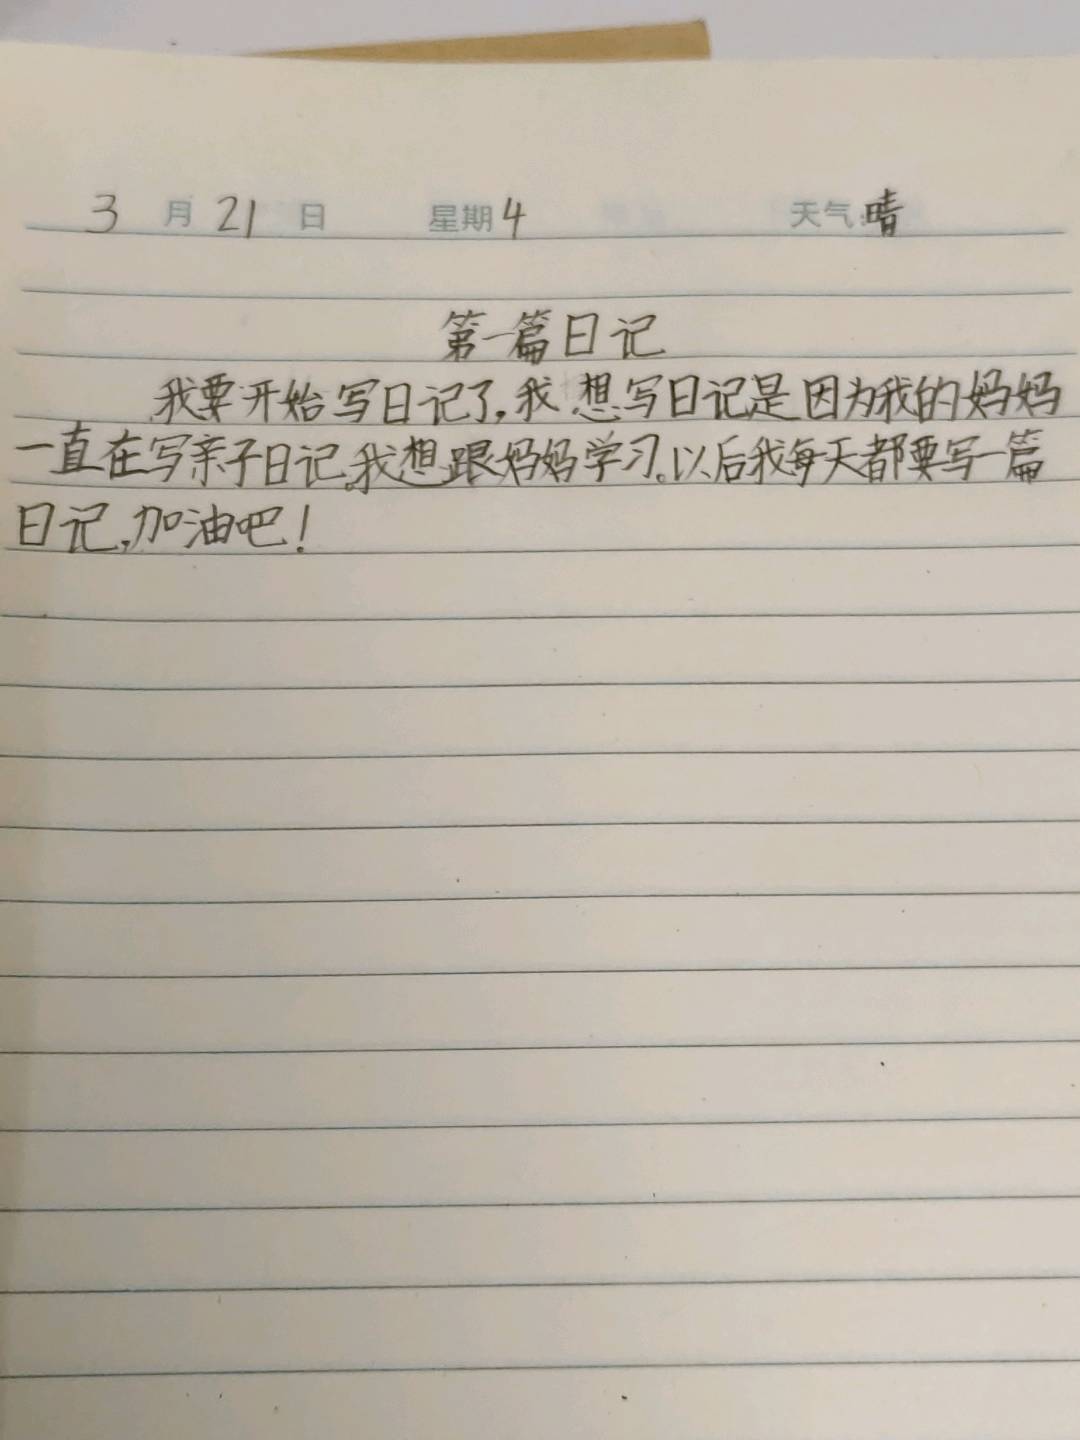 3 月 21 日 星期 4 天气：晴
第一篇日记
我要开始写日记了，我想写日记是因为我的妈妈
一直在写亲子日记。我想跟妈妈学习。以后我每天都要写一篇
日记，加油吧！